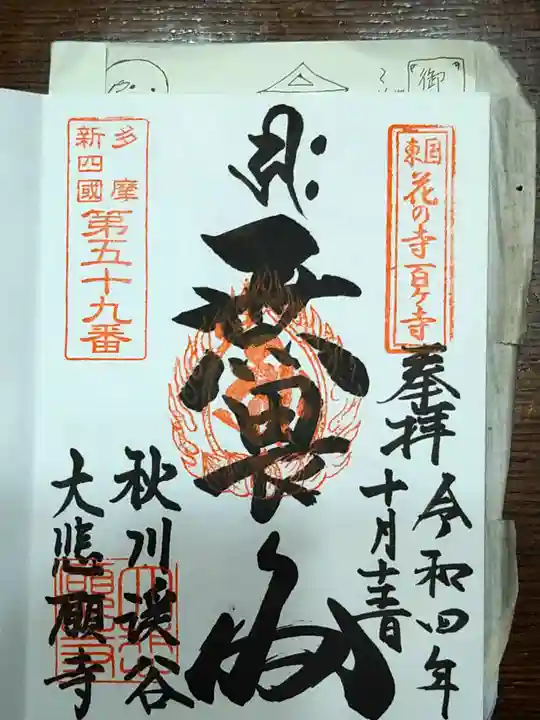 東国
花の寺百ヶ寺
奉拝
令和四年
十月
無畏閣
多摩
新四國
第五十九番
秋川渓谷
大悲願寺
御